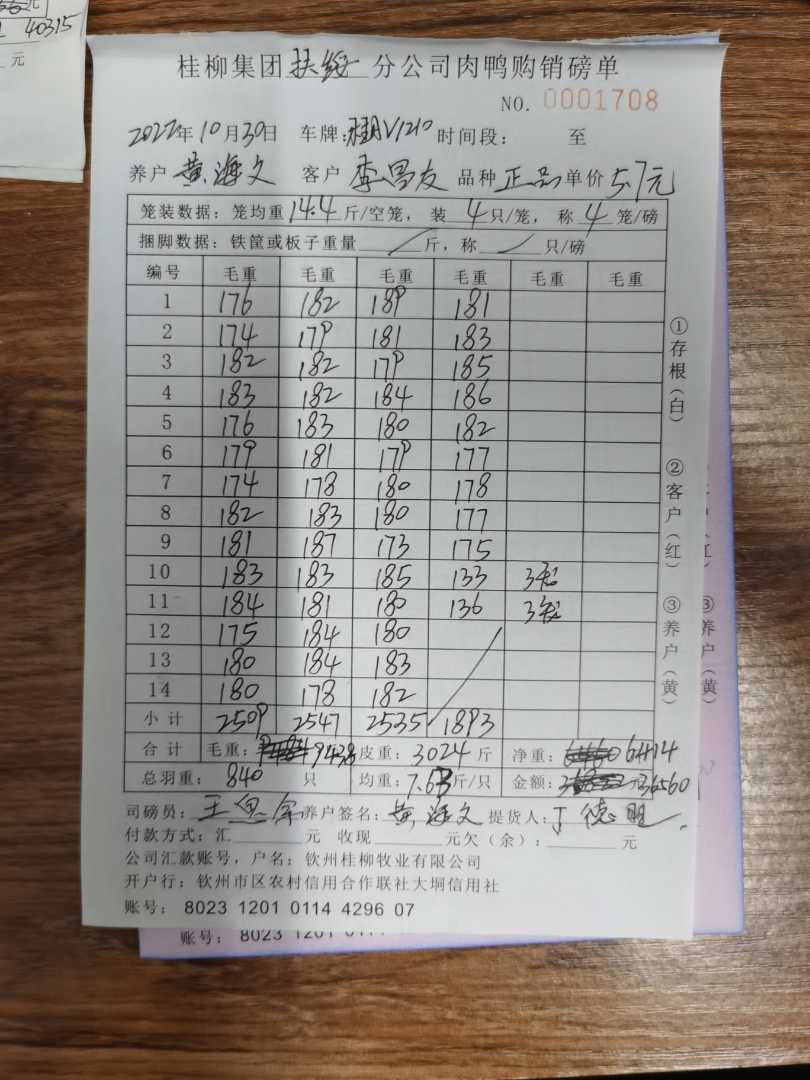 40315
元
桂柳集团扶绥分公司肉鸭购销磅单
NO. 0001708
2022年10月30日 车牌:桂AV1210 时间段: 至
养户 黄海文 客户 李昌友 品种 正品 单价 5.7元
笼装数据: 笼均重14.4斤/空笼, 装4只/笼, 称4笼/磅
捆脚数据: 铁筐或板子重量/斤, 称/只/磅
编号 毛重 毛重 毛重 毛重 毛重 毛重
1 176 182 189 181
2 174 179 181 183
3 182 182 179 185
4 183 182 184 186
5 176 183 180 182
6 179 181 179 177
7 174 178 180 178
8 182 183 180 177
9 181 187 173 175
10 183 183 185 133 3笼
11 184 181 180 136 3笼
12 175 184 180
13 180 184 183
14 180 178 182
小计 2509 2547 2535 1893
合计 毛重: 9438 皮重: 3024斤 净重: 6414
总羽重: 840 只 均重: 7.63斤/只 金额: 36560
司磅员: 王 养户签名: 黄海文 提货人: 丁德旺
付款方式: 汇 元 收现 元欠(余): 元
公司汇款账号, 户名: 钦州桂柳牧业有限公司
开户行: 钦州市区农村信用合作联社大垌信用社
账号: 8023 1201 0114 4296 07
①存根(白)
②客户(红)
③养户(黄)
③养户(黄)
账号: 8023 1201